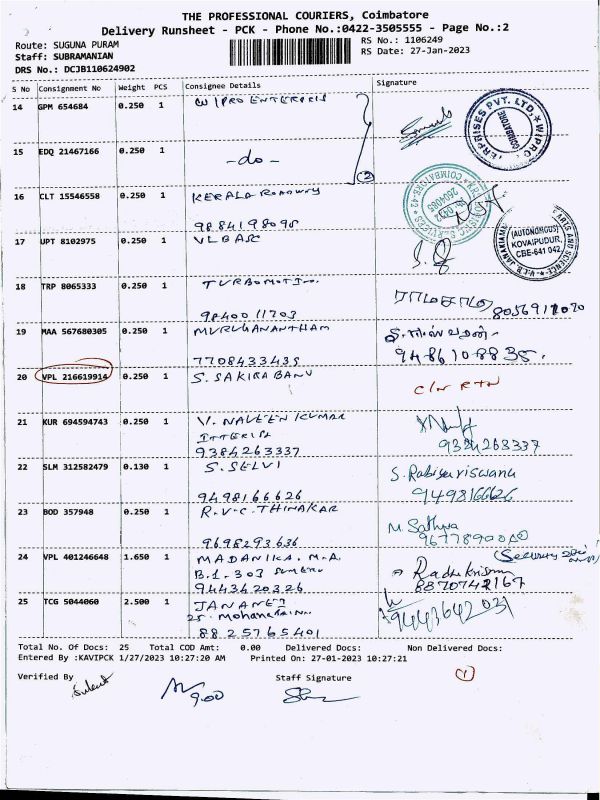 THE PROFESSIONAL COURIERS, Coimbatore
Delivery Runsheet - PCK - Phone No.:0422-3505555 - Page No.:2
Route: SUGUNA PURAM RS No.: 1106249
Staff: SUBRAMANIAN RS Date: 27-Jan-2023
DRS No.: DCJB110624902
S No Consignment No Weight PCS Consignee Details Signature
14 GPM 654684 0.250 1 WIPRO ENTERPRIS
ERPRISES PVT. LTD., WIPRO
COIMBATORE
15 EDQ 21467166 0.250 1 -do- (2)
16 CLT 15546558 0.250 1 KERALA ROADWAY
9884198098
17 UPT 8102975 0.250 1 VLBASC
(AUTONOMOUS)
KOVAIPUDUR,
CBE-641 042
ARTS AND SCIENCE
V.L.B. JANAKIAMM
18 TRP 8065333 0.250 1 TURBOMOTI
9840011703
19 MAA 567680305 0.250 1 MURUGANANTHAM
7708433435
9486108835.
20 VPL 216619914 0.250 1 S. SAKIRABANU C/N RTN
21 KUR 694594743 0.250 1 V. NAVEEN KUMAR
9384263337 9384263337
22 SLM 312582479 0.130 1 S. SELVI S. Rabiyaviswana
9498166626 9498166626
23 BOD 357948 0.250 1 R.V.C. THINAKAR M. Sathya
9698293636
24 VPL 401246648 1.650 1 MADANIKA. M.A (Security
B.1-303 Radhakrishnan
9443420326 8870742167
25 TCG 5044060 2.500 1 JANANET
25. Mohana 9443642031
8825765401
Total No. Of Docs: 25 Total COD Amt: 0.00 Delivered Docs: Non Delivered Docs:
Entered By :KAVIPCK 1/27/2023 10:27:20 AM Printed On: 27-01-2023 10:27:21
Verified By Staff Signature (1)
9.00